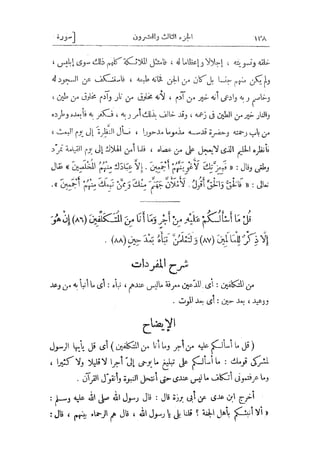 ١٣٨ الجزء الثالث والعشرون [ سورة
خلقه وتسويته ، إجلالا وإعظاما له ، فامتثل الملائكة كلهم ذلك سوى إبليس ،
ولم يكن منهم جنسا بل كان من الجن فخانه طبعه ، فاستنكف عن السجود له
وخاصم ربه وادعى أنه خير من آدم ، لأنه مخلوق من نار وآدم مخلوق من طين ،
والنار خير من الطين فى زعمه ، وقد خالف بذلك أمر ربه ، فكفر به فأبعده وطرده
من باب رحمته وحضرة قدسه مذموما مدحورا ، فسأل النظرة إلى يوم البعث ،
فأنظره الحليم الذى لا يعجل على من عصاه ، فلما أمن الهلاك إلى يوم القيامة تمرّد
وطغى وقال : « فَبِعِزَّتِكَ لَأُغْوِيَنَّهُمْ أَجْمَعِينَ . إِلَّا عِبَادَكَ مِنْهُمُ الْمُخْلَصِينَ » فقال
تعالى : « فَالْحَقُّ وَالْحَقَّ أَقُولُ . لَأَمْلَأَنَّ جَهَنَّمَ مِنْكَ وَمِمَّنْ تَبِعَكَ مِنْهُمْ أَجْمَعِينَ » .
قُلْ مَا أَسْأَلُكُمْ عَلَيْهِ مِنْ أَجْرٍ وَمَا أَنَا مِنَ الْمُتَكَلِّفِينَ (٨٦) إِنْ هُوَ
إِلَّا ذِكْرٌ لِلْعَالَمِينَ (٨٧) وَلَتَعْلَمُنَّ نَبَأَهُ بَعْدَ حِينٍ (٨٨) .
شرح المفردات
من المتكلفين : أى المدّعين معرفة ما ليس عندهم ، نبأه : أى ما أنبأ به من وعد
ووعيد ، بعد حين : أى بعد الموت .
الإيضاح
( قل ما أسألكم عليه من أجر وما أنا من المتكلفين ) أى قل يأيها الرسول
لمشركى قومك : ما أسألكم على تبليغ ما يوحى إلىّ أجرا لا قليلا ولا كثيرا ،
وما عرفتمونى أتكلف ما ليس عندى حتى أنتحل النبوة وأتقوّل القرآن .
أخرج ابن عدى عن أبى برزة قال : قال رسول الله صلى الله عليه وسلم :
« ألا أنبئكم بأهل الجنة ؟ قلنا بلى يا رسول الله ، قال هم الرحماء بينهم ، قال :